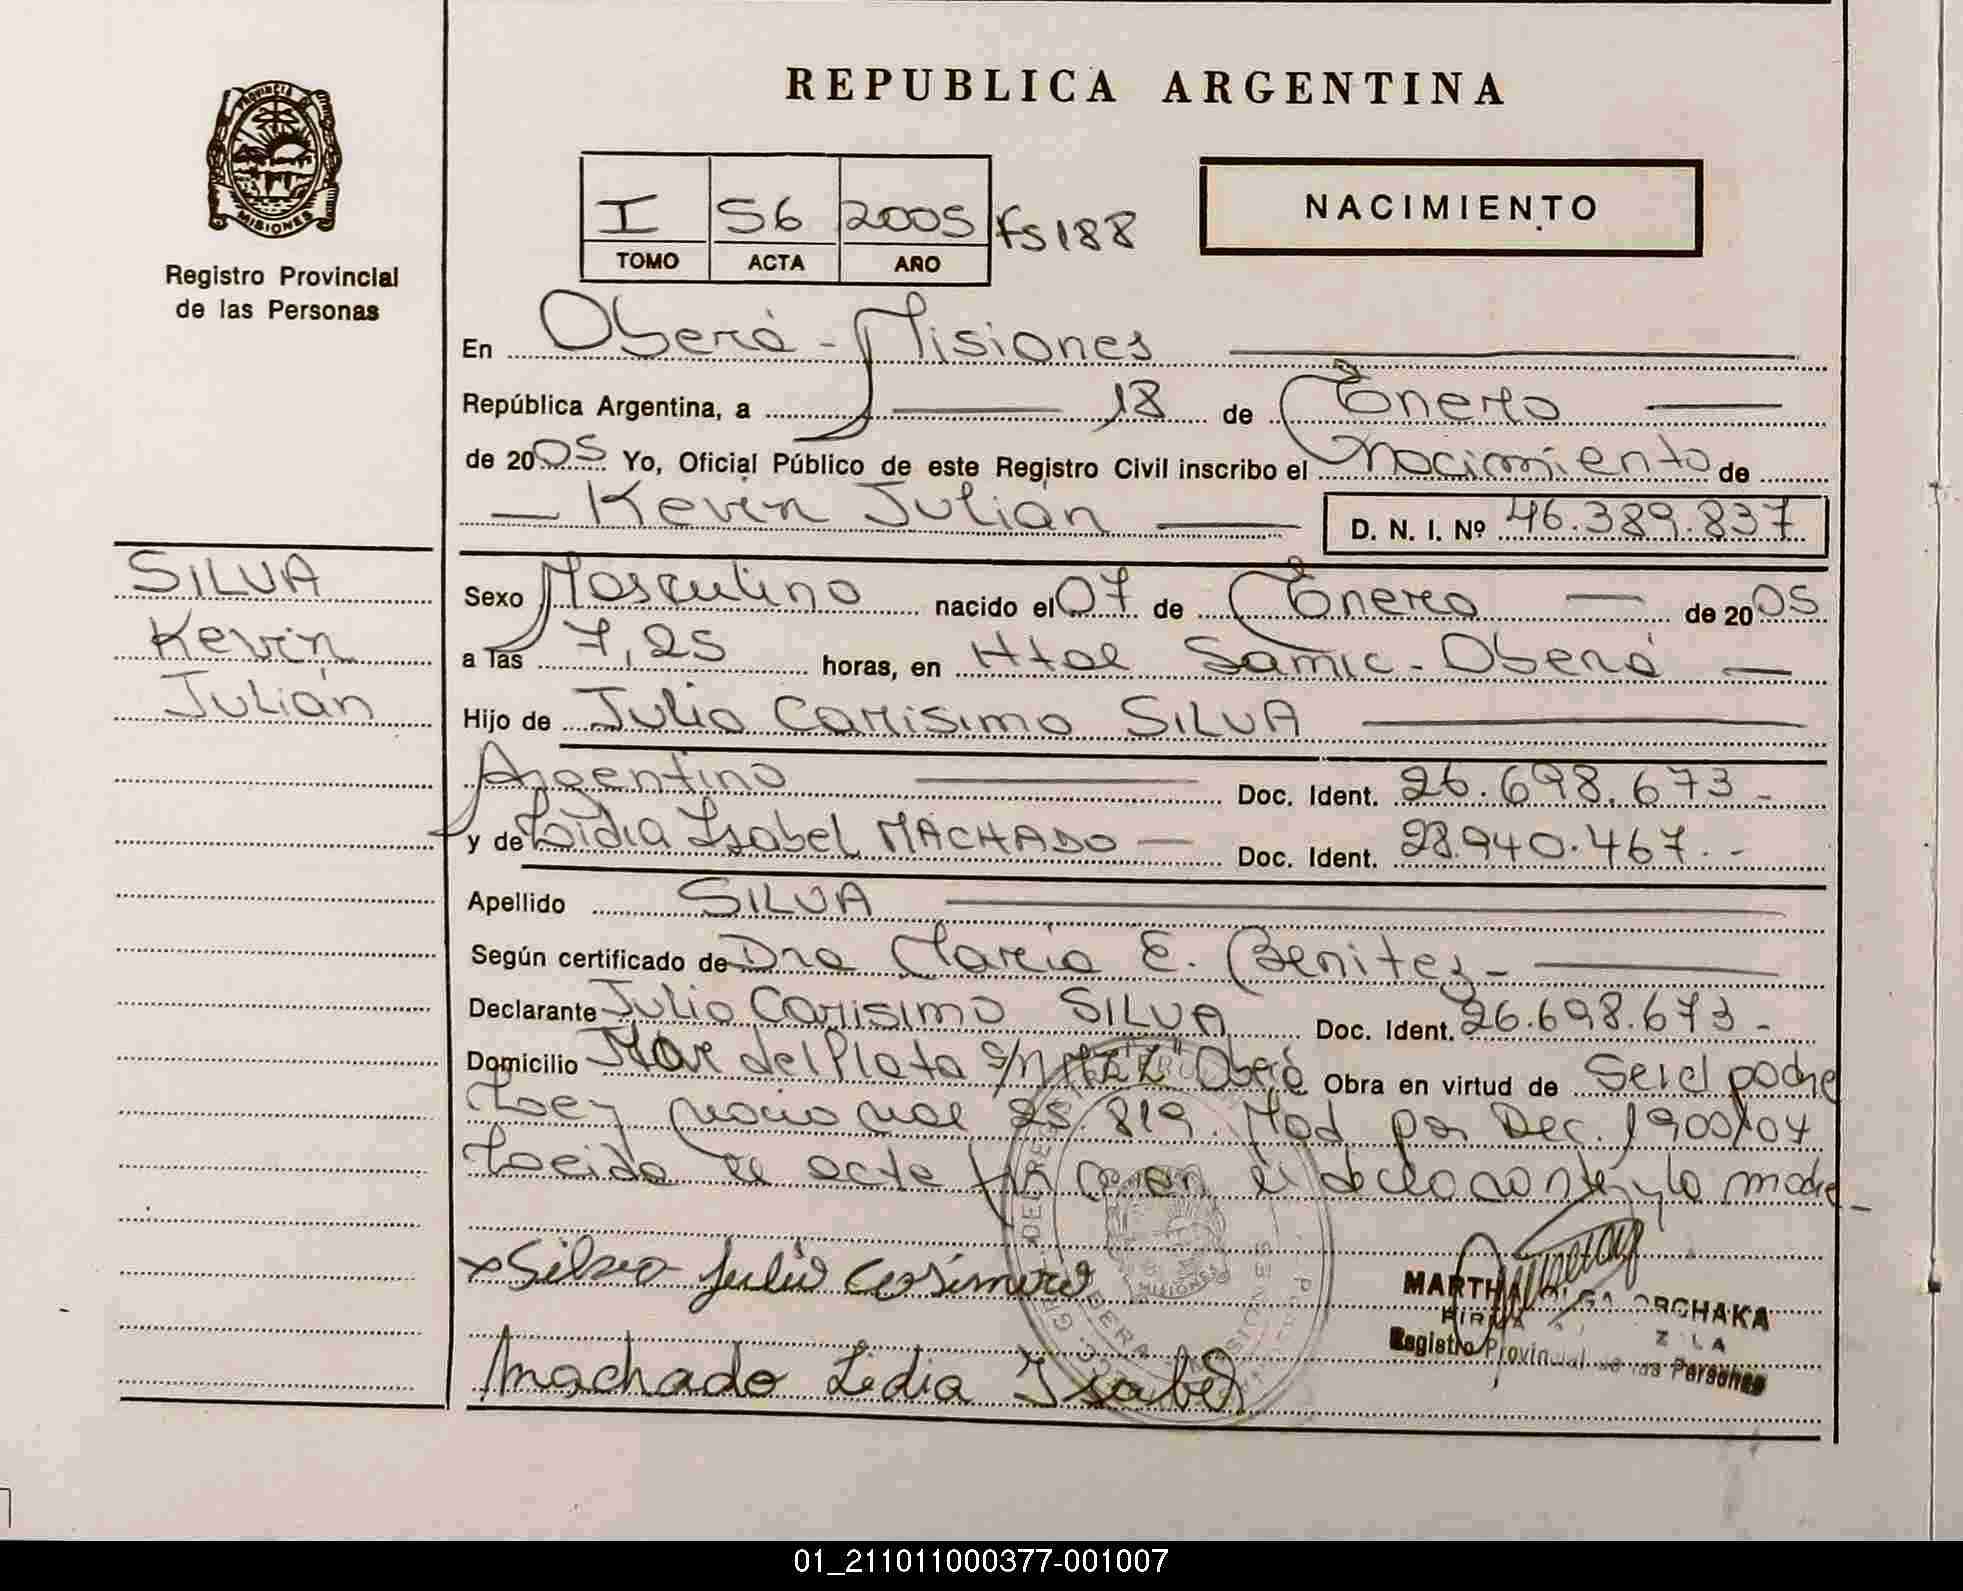 REPUBLICA ARGENTINA
PROVINCIA DE
MISIONES
Registro Provincial
de las Personas
I 56 2005 fs 188
TOMO ACTA AÑO
NACIMIENTO
En Oberá - Misiones
República Argentina, a 18 de Enero
de 2005 Yo, Oficial Público de este Registro Civil inscribo el Nacimiento de
Kevin Julián
D. N. I. Nº 46.389.837
SILVA
Kevin
Julián
Sexo Masculino nacido el 07 de Enero de 2005
a las 7,25 horas, en Htal Samic - Oberá
Hijo de Julio Carisimo SILVA
Argentino Doc. Ident. 26.698.673.-
y de Lidia Isabel MACHADO Doc. Ident. 28.940.467.-
Apellido SILVA
Según certificado de Dra María E. Benitez-
Declarante Julio Carisimo SILVA Doc. Ident. 26.698.673.-
Domicilio Mar del Plata s/n "Z" Oberá Obra en virtud de Ser el padre
Ley nacional 25.819. Mod por Dec. 1900/04
Leida el acta firman el declarante y la madre-
x Silva Julio
Machado Lidia Isabel
MARTHA OLGA
FIRMA
Registro Provincial de las Personas
MISIONES
01_211011000377-001007